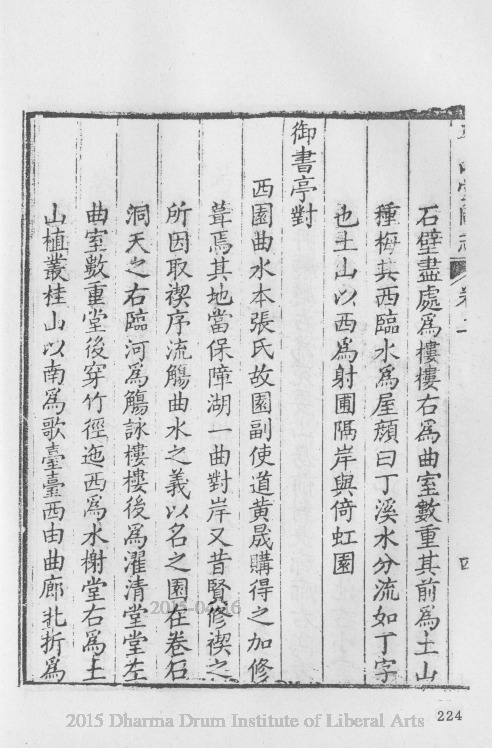 石壁盡處爲樓樓右爲曲室數重其前爲土山
種梅其西臨水爲屋顔曰丁溪水分流如丁字
也土山以西爲射圃隔岸與倚虹園
御書亭對
西園曲水本張氏故園副使道黄晟購得之加修
葺焉其地當保障湖一曲對岸又昔賢修禊之
所因取禊序流觴曲水之義以名之園在卷石
洞天之右臨河爲觴詠樓樓後爲濯清堂堂左
曲室數重堂後穿竹徑迤西爲水榭堂右爲土
山植叢桂山以南爲歌臺臺西由曲廊北折爲
224
2015 Dharma Drum Institute of Liberal Arts